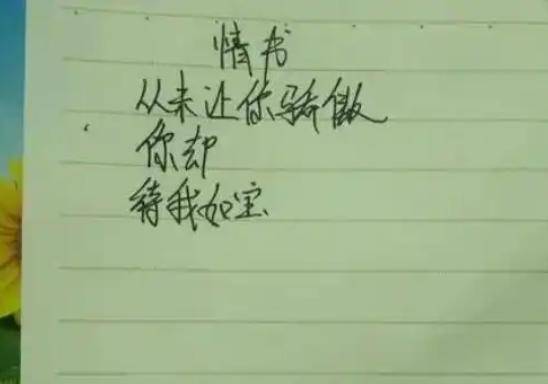 情书
从来让你骄傲
你却
待我如宝